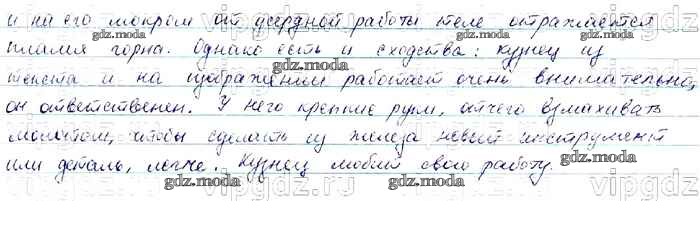 и на его мокром от усердной работы теле отражается
пламя горна. Однако есть и сходства: кузнец из
текста и на изображении работает очень внимательно,
он ответственен. У него крепкие руки, отчего взмахивать
молотом, чтобы сделать из железа новый инструмент
или деталь, легче. Кузнец любит свою работу.
gdz.moda
vipgdz.ru